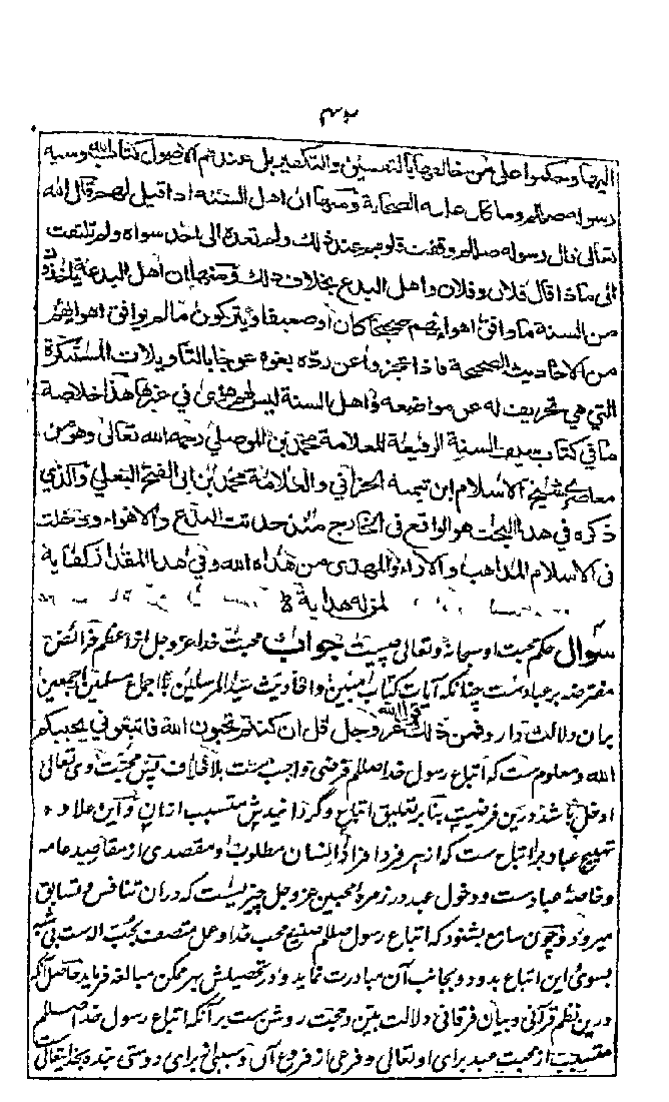 ۴۲
اليها وحكموا على من خالفها بالتفسيق والتكفير بل عندهم الاصول كتاب الله وسنة
رسوله صللم وما كان عليه الصحابة ومنها ان اهل السنة اذا قيل لهم قال الله
تعالى قال رسوله صللم وقفت قلوبهم عند ذلك ولم تعده الى احد سواه ولم تلتفت
الى ماذا قال فلان وفلان واهل البدع بخلاف ذلك ومنها ان اهل البدعة ياخذون
من السنة ما وافق اهواءهم صحيحا كان او ضعيفا ويتركون ما لم يوافق اهواءهم
من الاحاديث الصحيحة فاذا عجزوا عن رده بغوه عوجا بالتاويلات المستنكرة
التي هي تحريف له عن مواضعه واهل السنة ليس لهم هوى في غيرها هذا خلاصة
ما في كتاب سيف السنة الرفيعة للعلامة محمد بن الموصلي رحمه الله تعالى وهو من
معاصري شيخ الاسلام ابن تيمية الحراني والعلامة محمد بن ابى الفتح البعلي والذي
ذكره في هذا البحث هو الواقع في الخارج منذ حدثت البدع والاهواء ودخلت
في الاسلام المذاهب والآراء والمهتدى من هداه الله وفي هذا المقدار كفاية
لمن له هداية
سوال حكم محبت او سبحانه وتعالى چيست جواب محبت خدا عز وجل از اعظم فرائض
مفترضه بر عباد ست چنانكه آيات كتاب مبين واحاديث سيد المرسلين با اجماع مسلمين اجمعين
بران دلالت دارد فمن ذلك قول الله عز وجل قل ان كنتم تحبون الله فاتبعوني يحببكم
الله ومعلوم ست كه اتباع رسول خدا صللم فرضي واجب ست بلا خلاف پس محبت وى تعالى
ادخل باشد درين فرضيت بنابر تعليق اتباع وگردانيدنش متسبب ازان واين علاوه
تهييج عباد بر اتباع ست كه از هر فرد افراد انسان مطلوب ومقصدى از مقاصد عامه
وخاصه عباد ست ودخول عبد در زمره محبين عز وجل چيزيست كه دران تنافس وتسابق
ميرود وچون سامع بشنود كه اتباع رسول صللم صنيع محب خدا وعمل متصف بحب اله ست بى شبه
بسوى اين اتباع بدود وبجانب آن مبادرت نمايد ودر تحصيلش بهر ممكن مبالغه فرمايد حاصل آنكه
درين نظم قرآنى وبيان فرقانى دلالت بين وحجت روشن ست برآنكه اتباع رسول خدا صللم
متسبب از محبت عبد براى او تعالى وفرعى از فروع آن وسببى براى دوستى بنده بخدايتعالى